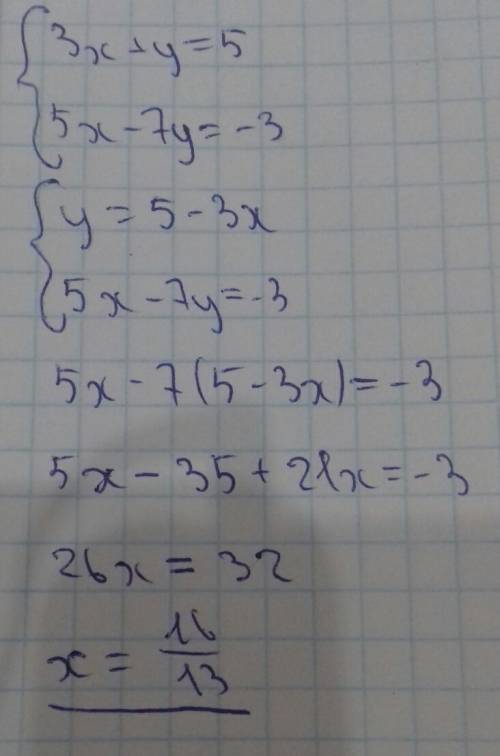 3x + y = 5
5x - 7y = -3
y = 5 - 3x
5x - 7y = -3
5x - 7(5 - 3x) = -3
5x - 35 + 21x = -3
26x = 32
x = 16/13